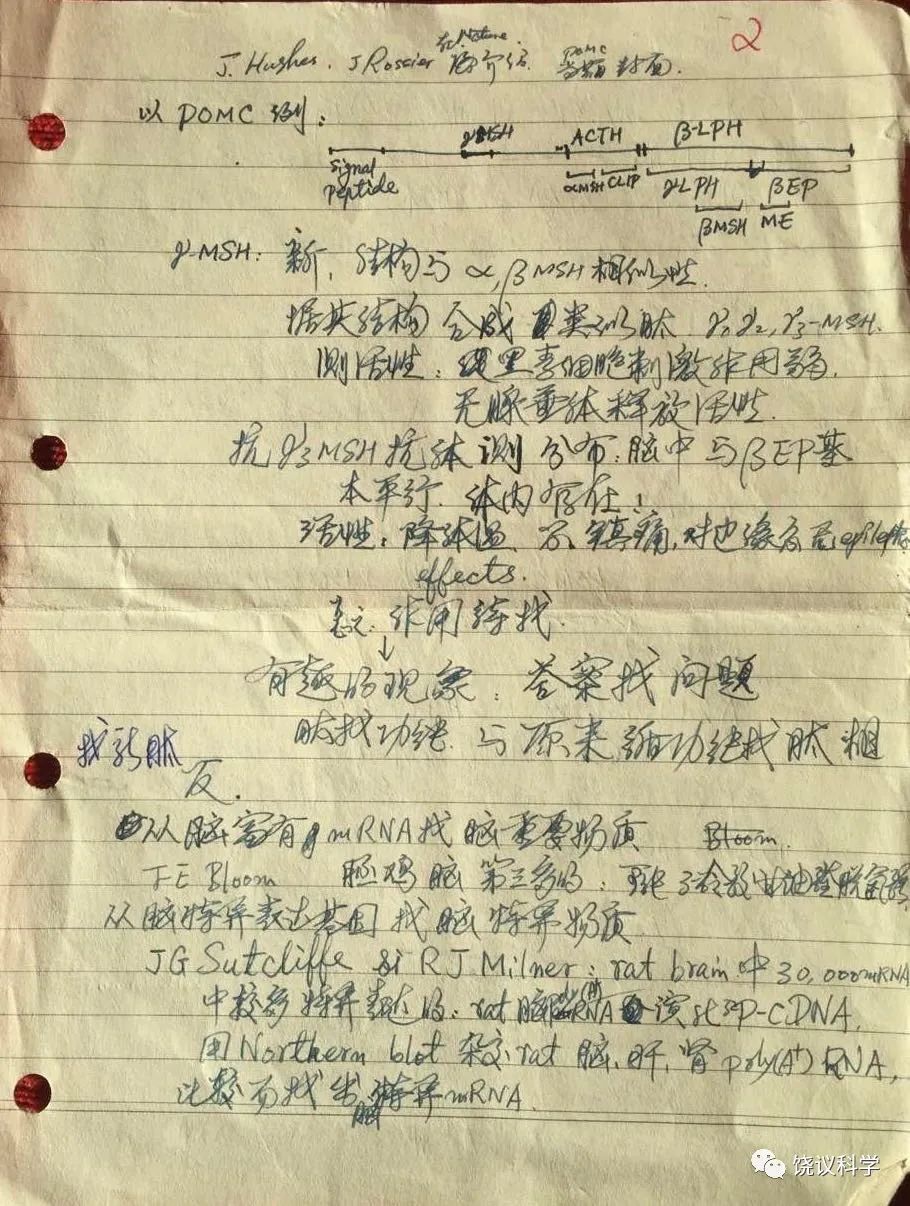 2
在 Nature
J. Hushes. J Rossier 简介绍. POMC 封面.
以 POMC 为例:
γMSH ACTH β-LPH
signal peptide αMSH CLIP γLPH βEP
βMSH ME
γ-MSH: 新, 结构与 α, β MSH 相似性.
据其结构合成 类似肽 γ1, γ2, γ3-MSH.
测活性: 黑素细胞刺激作用弱.
无腺垂体释放活性.
抗γ3MSH抗体测分布: 脑中与βEP基
本平行. 体内存在!
活性: 降体温, 不镇痛, 对边缘有
effects.
作用待找.
↓
有趣的现象: 答案找问题
肽找功能. 与原来 功能找肽相
反.
找新肽
从脑富有 mRNA找脑重要物质 Bloom.
F E Bloom 胚鸡脑第三多的:
从脑特异表达基因找脑特异物质
JG Sutcliffe 和 RJ Milner: rat brain 中 30,000 mRNA
中较多特异表达的: rat 脑 RNA 32P-cDNA,
用 Northern blot 杂交 rat 脑, 肝, 肾 poly(A+) RNA,
比较而找出脑特异 mRNA.
饶议科学